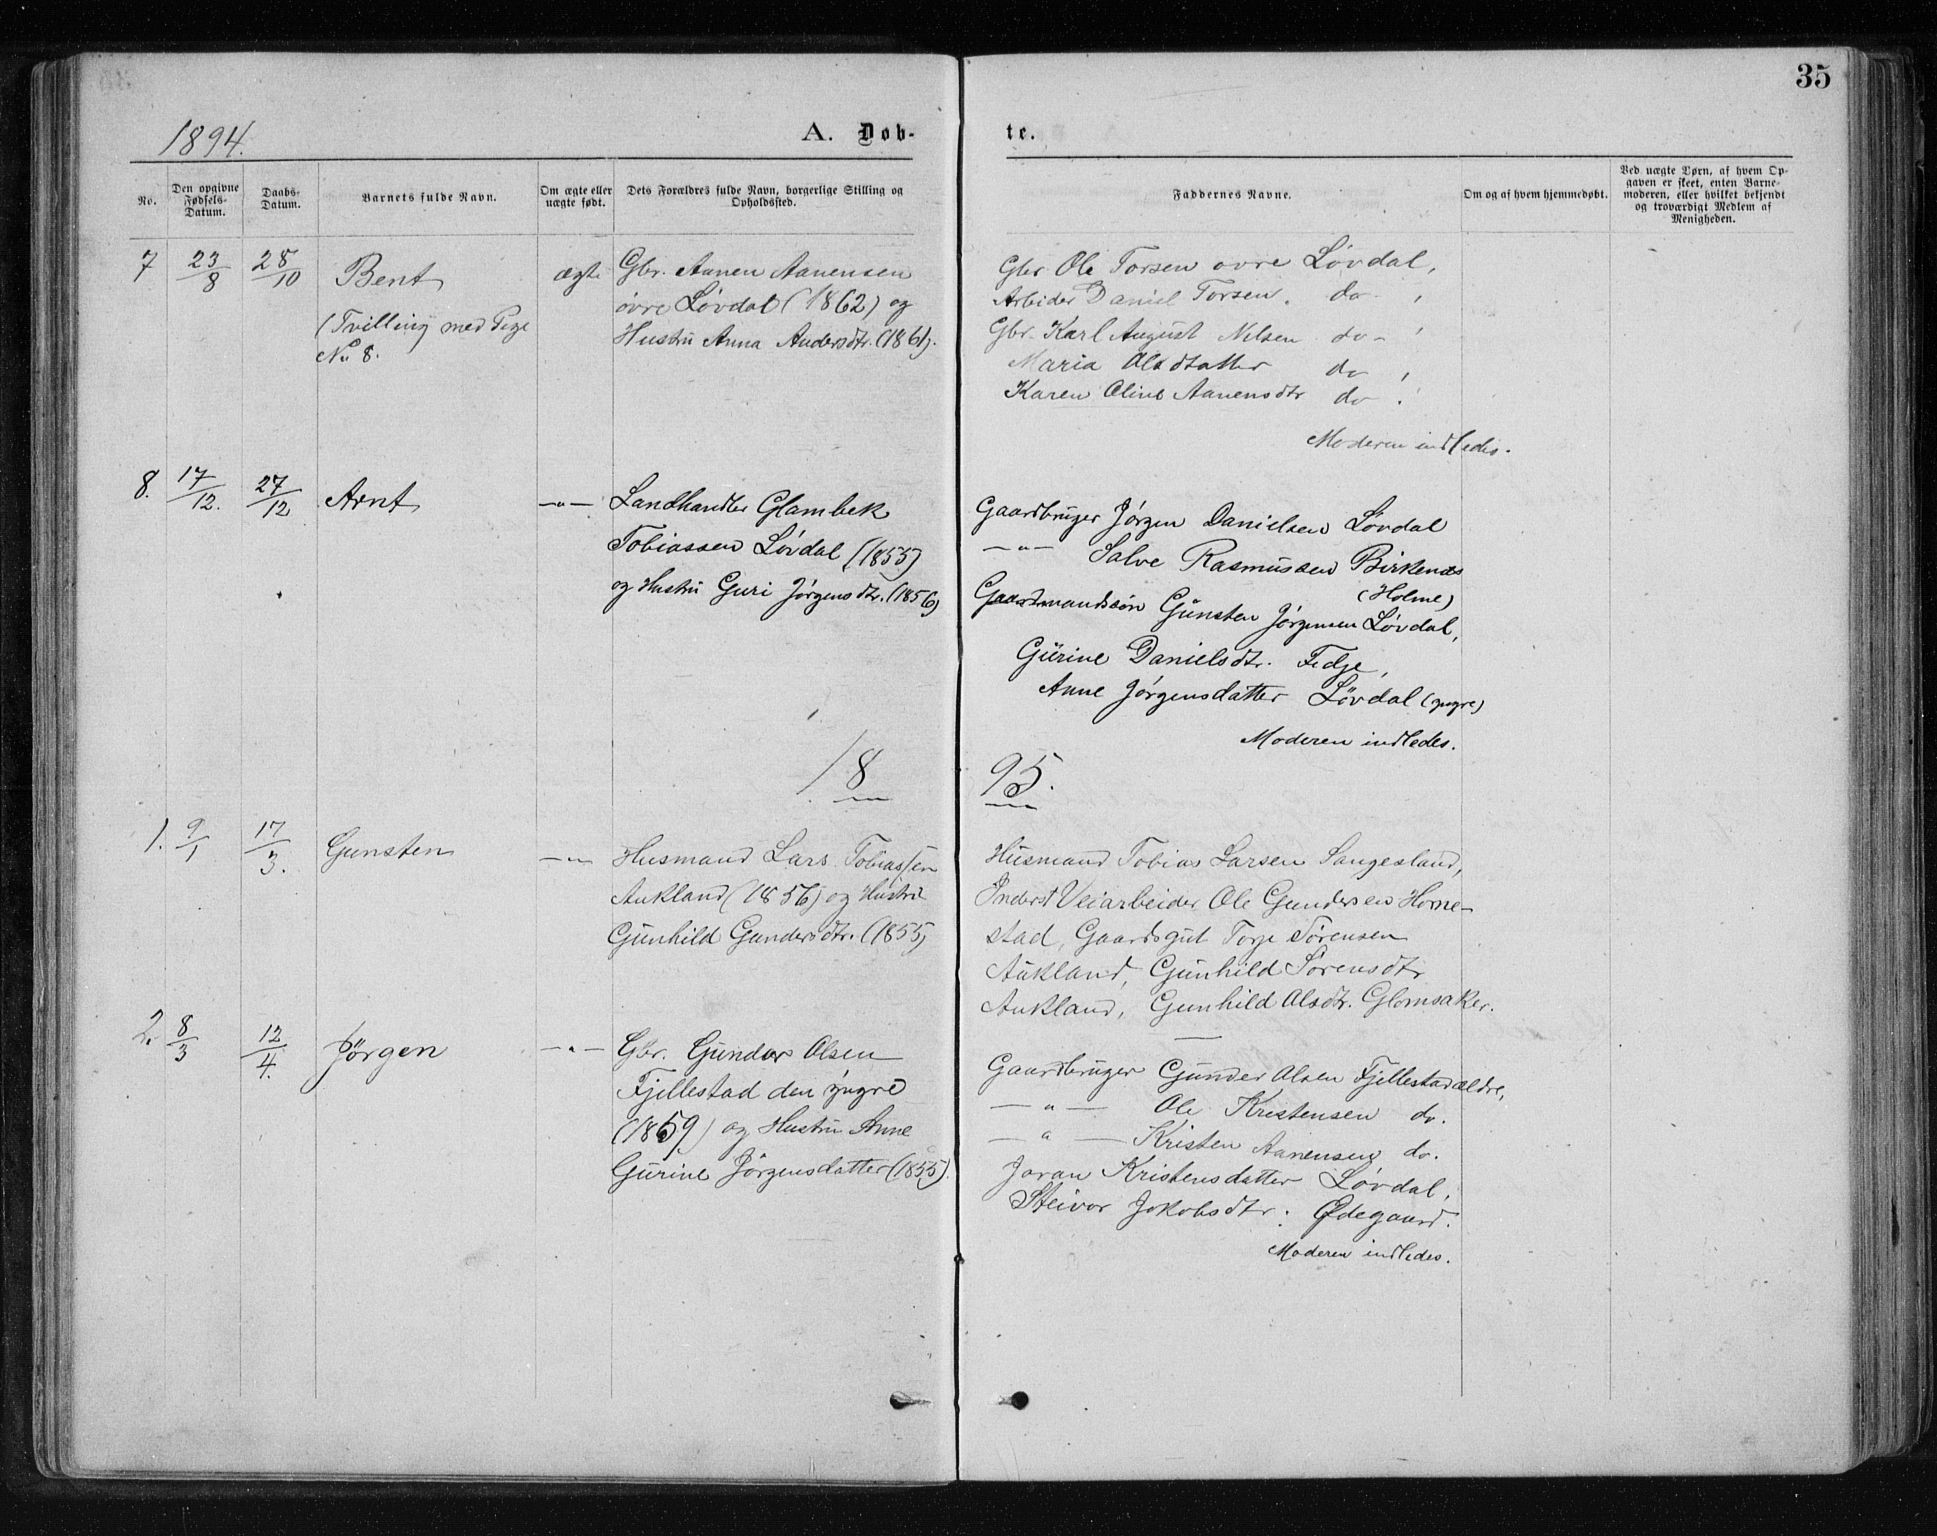 35
1894.
A. Døb-
te.
No.
Den opgivne Fødsels-Datum.
Daabs-Datum.
Barnets fulde Navn.
Om ægte eller uægte født.
Dets Forældres fulde Navn, borgerlige Stilling og Opholdssted.
Faddernes Navne.
Om og af hvem hjemmedøbt.
Ved uægte Børn, af hvem Opgaven er skeet, enten Barnemoderen, eller hvilket bekjendt og troværdigt Medlem af Menigheden.
7 23/8 28/10 Bent ægte Gbr. Aanen Aanensen
(Tvilling med Pige
No 8.
øvre Løvdal (1862) og
Hustru Anna Andersdtr. (1861).
Gbr Ole Torsen øvre Løvdal,
Arbeider Daniel Torsen. do ,
Gbr. Karl August Nilsen do ,
Maria Olsdatter do ,
Karen Oline Aanensdtr do .
Moderen indledes.
8. 17/12. 27/12 Arnt —"— Landhandler Glambek
Tobiassen Løvdal (1855)
og Hustru Guri Jørgensdtr. (1856)
Gaardbruger Jørgen Danielsen Løvdal
—"— Salve Rasmussen Birkenes
(Holme)
Gaardmandssøn Gunsten Jørgensen Løvdal,
Gurine Danielsdtr. Fidje,
Anne Jørgensdatter Løvdal (yngre)
Moderen indledes.
18 95.
1. 9/1 17/3. Gunsten —"— Husmand Lars Tobiassen
Aukland (1856) og Hustru
Gunhild Gundersdtr. (1855)
Husmand Tobias Larsen Sangesland,
Inderst Veiarbeider Ole Gundersen Horne-
stad, Gaardsgut Torje Sørensen
Aukland, Gunhild Sørensdtr
Aukland, Gunhild Olsdtr. Glomsaker.
2. 8/3 12/4. Jørgen —"— Gbr. Gunder Olsen
Fjellestad den yngre
(1859) og Hustru Anne
Gurine Jørgensdatter (1855).
Gaardbruger Gunder Olsen Fjellestad ældre,
—"— Ole Kristensen do.
—"— Kristen Aanensen do.
Joran Kristensdatter Løvdal,
Steivor Jakobsdtr. Ødegaard.
Moderen indledes.